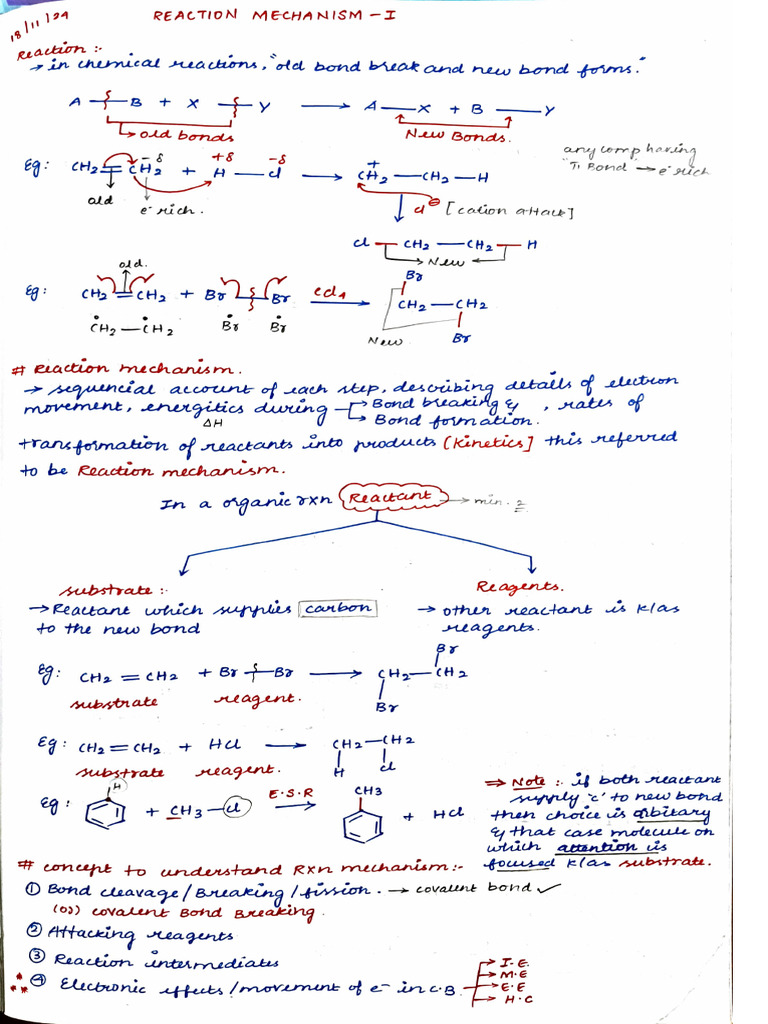 18/11/24
REACTION MECHANISM - I
Reaction :-
→ in chemical reactions, "old bond break and new bond forms."
A — B + X — Y → A — X + B — Y
old bonds New Bonds.
any comp having
"π Bond" → e⁻ rich
Eg: CH2 = CH2 -δ + +δ H — Cl -δ → +CH2 — CH2 — H
old e⁻ rich. Cl⊖ [cation attack]
Cl — CH2 — CH2 — H
New
old.
Eg: CH2 = CH2 + Br — Br CCl4 → CH2 — CH2
Br
Br
ĊH2 — ĊH2 Ḃr Ḃr
New
# Reaction mechanism.
→ sequencial account of each step, describing details of electron
movement, energitics during Bond breaking & , rates of
ΔH Bond formation.
transformation of reactants into products [Kinetics] this referred
to be Reaction mechanism.
In a organic rxn Reactant → min. 2
substrate :- Reagents.
→ Reactant which supplies carbon → other reactant is k/as
to the new bond reagents.
Eg: CH2 = CH2 + Br — Br → CH2 — CH2
Br
Br
substrate reagent.
Eg: CH2 = CH2 + HCl → CH2 — CH2
H Cl
substrate reagent.
Eg: H + CH3 — Cl E.S.R → CH3 + HCl
⇒ Note :- if both reactant
supply 'c' to new bond
then choice is orbitary
& that case molecule on
which attention is
focused k/as substrate.
# concept to understand Rxn mechanism:-
① Bond cleavage / Breaking / fission. → covalent bond ✓
(or) covalent Bond Breaking.
② Attacking reagents
③ Reaction intermediates
④ Electronic effects / movement of e⁻ in C.B
I.E.
M.E
E.E
H.C